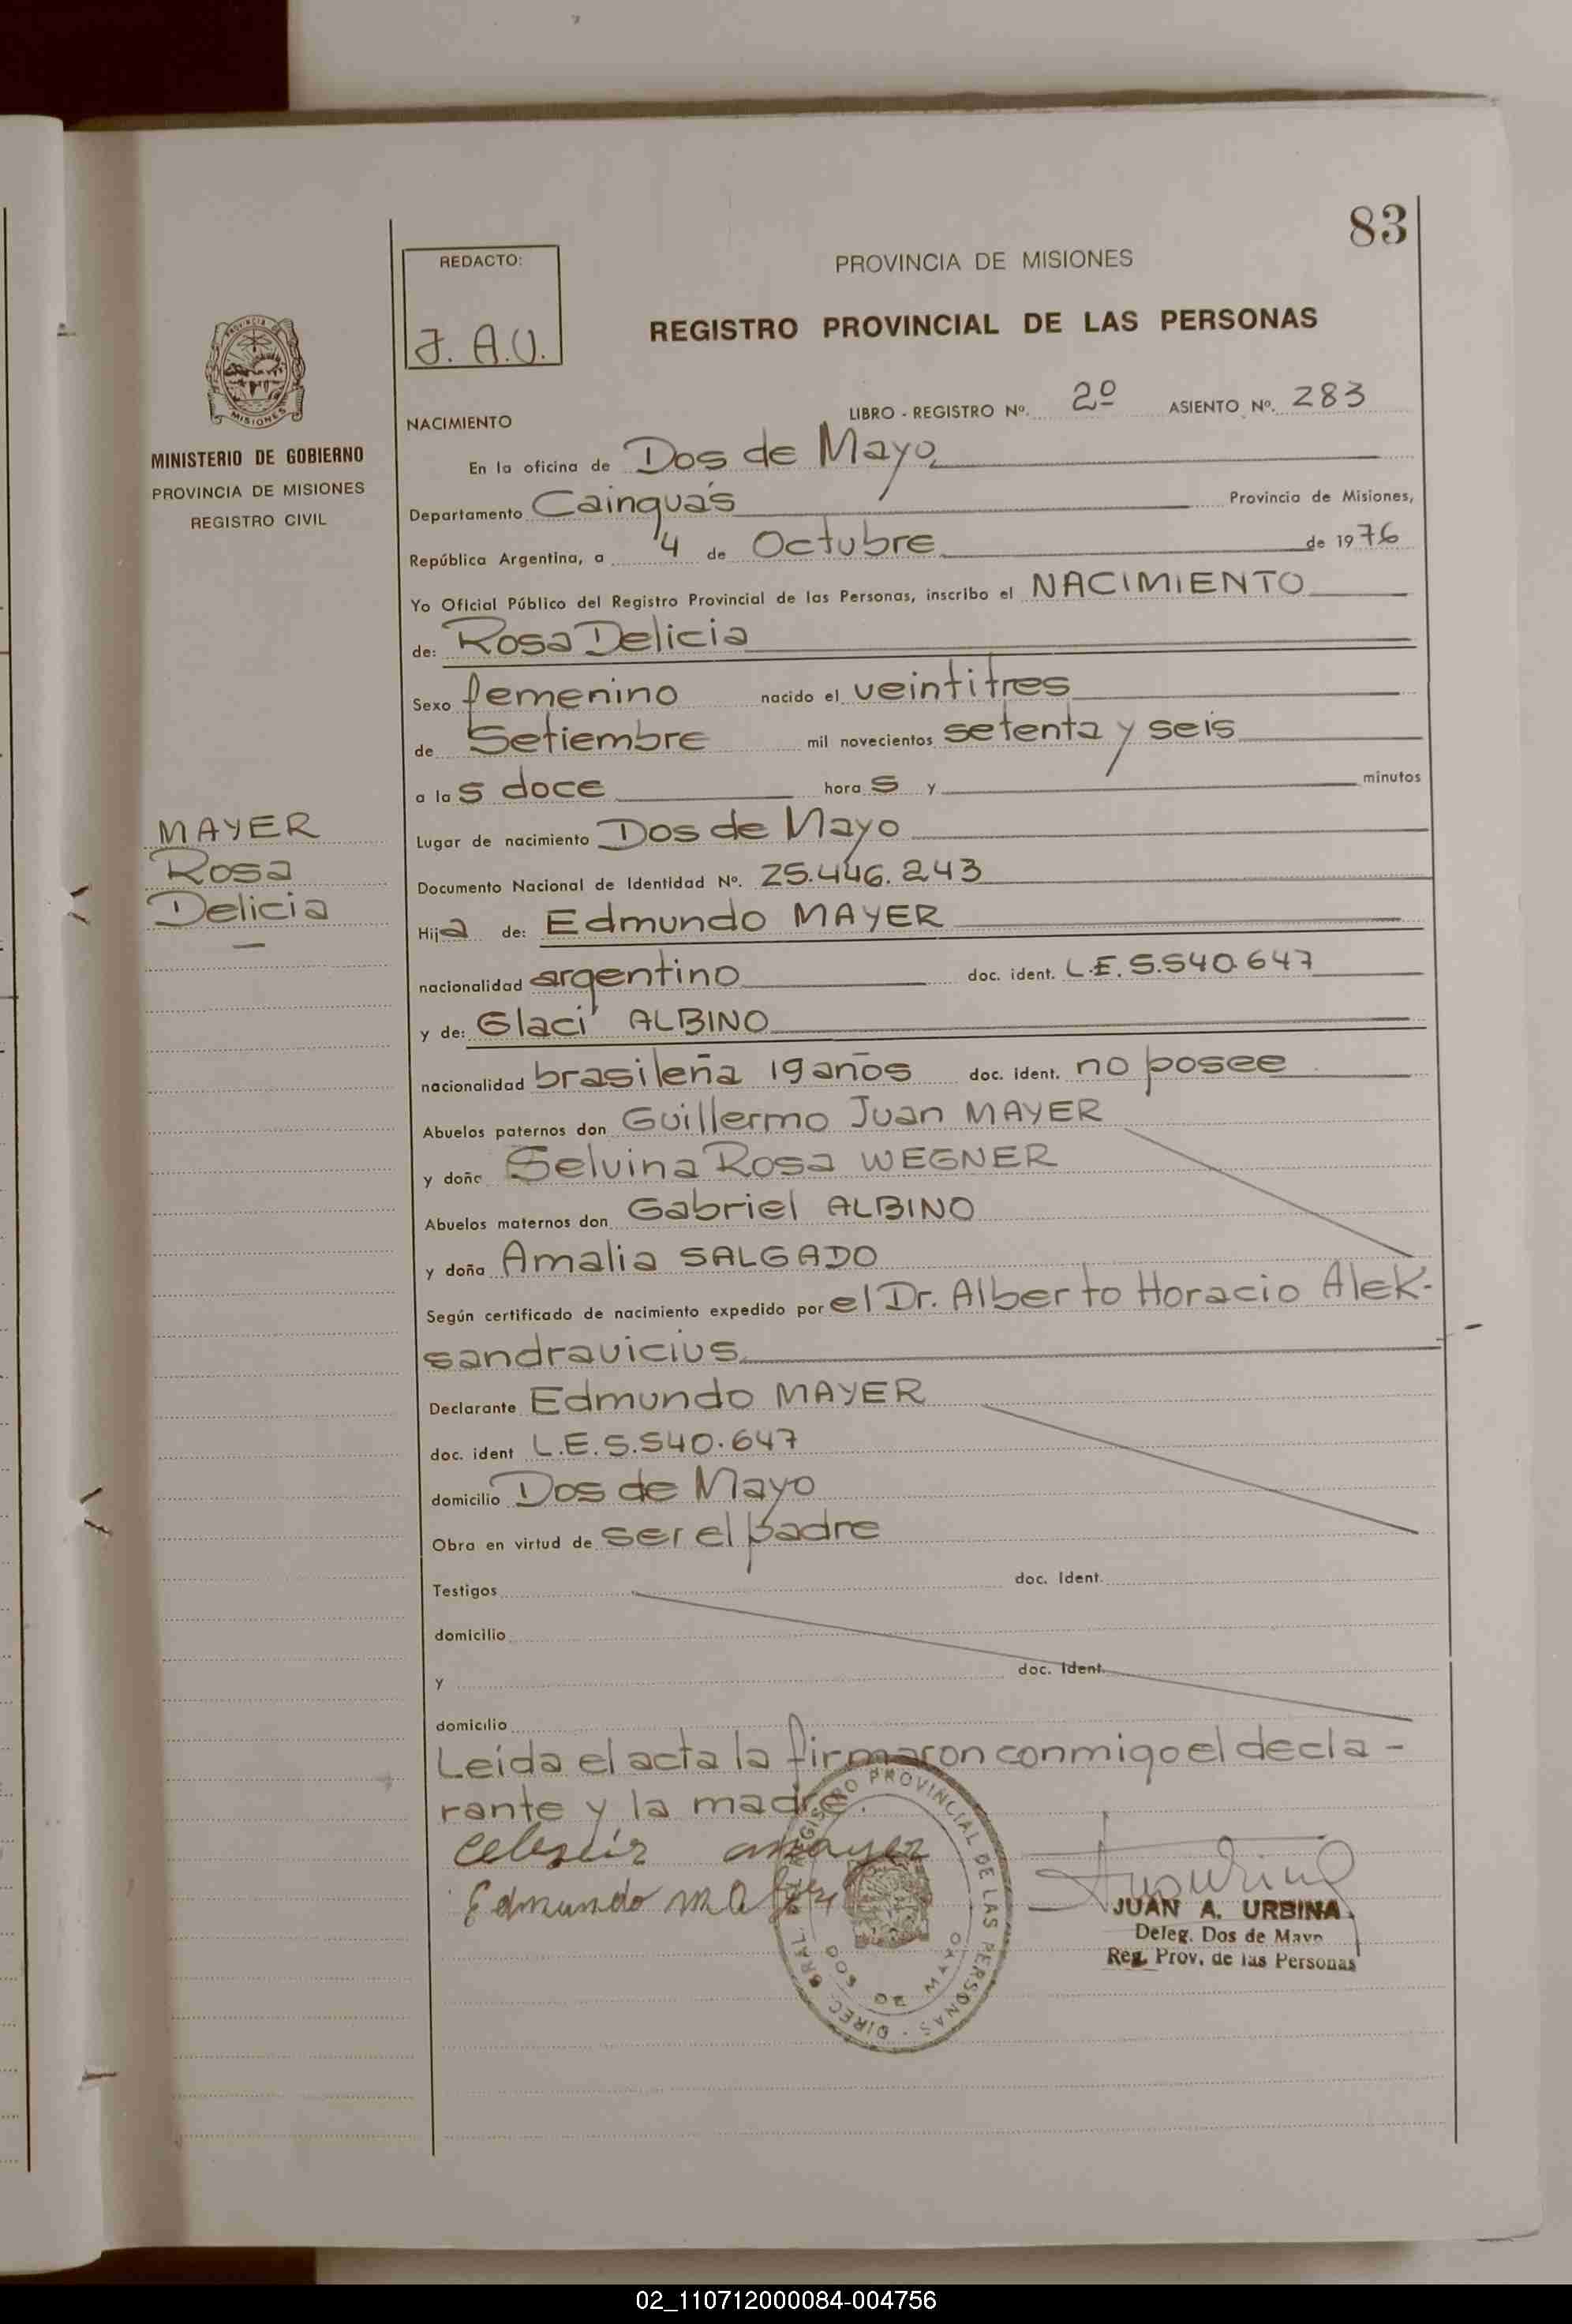 83
REDACTO:
J. A.U.
PROVINCIA DE MISIONES
REGISTRO PROVINCIAL DE LAS PERSONAS
PROVINCIA DE
MISIONES
MINISTERIO DE GOBIERNO
PROVINCIA DE MISIONES
REGISTRO CIVIL
NACIMIENTO LIBRO - REGISTRO Nº. 2º ASIENTO Nº. 283
En la oficina de Dos de Mayo
Departamento Cainguás Provincia de Misiones,
República Argentina, a 4 de Octubre de 1976
Yo Oficial Público del Registro Provincial de las Personas, inscribo el NACIMIENTO
de: Rosa Delicia
Sexo femenino nacido el veintitres
de Setiembre mil novecientos setenta y seis
a las doce horas y minutos
MAYER
Rosa
Delicia
Lugar de nacimiento Dos de Mayo
Documento Nacional de Identidad Nº. 25.446.243
Hija de: Edmundo MAYER
nacionalidad argentino doc. ident. L.E. 5.540.647
y de: Glaci ALBINO
nacionalidad brasileña 19 años doc. ident. no posee
Abuelos paternos don Guillermo Juan MAYER
y doña Selvina Rosa WEGNER
Abuelos maternos don Gabriel ALBINO
y doña Amalia SALGADO
Según certificado de nacimiento expedido por el Dr. Alberto Horacio Alek-
sandravicius
Declarante Edmundo MAYER
doc. ident L.E. 5.540.647
domicilio Dos de Mayo
Obra en virtud de ser el padre
Testigos doc. Ident.
domicilio
y doc. Ident.
domicilio
Leída el acta la firmaron conmigo el decla-
rante y la madre.
Edmundo
DIREC. GRAL. DEL REGISTRO PROVINCIAL DE LAS PERSONAS
DOS DE MAYO
JUAN A. URBINA
Deleg. Dos de Mayo
Reg. Prov. de las Personas
02_110712000084-004756